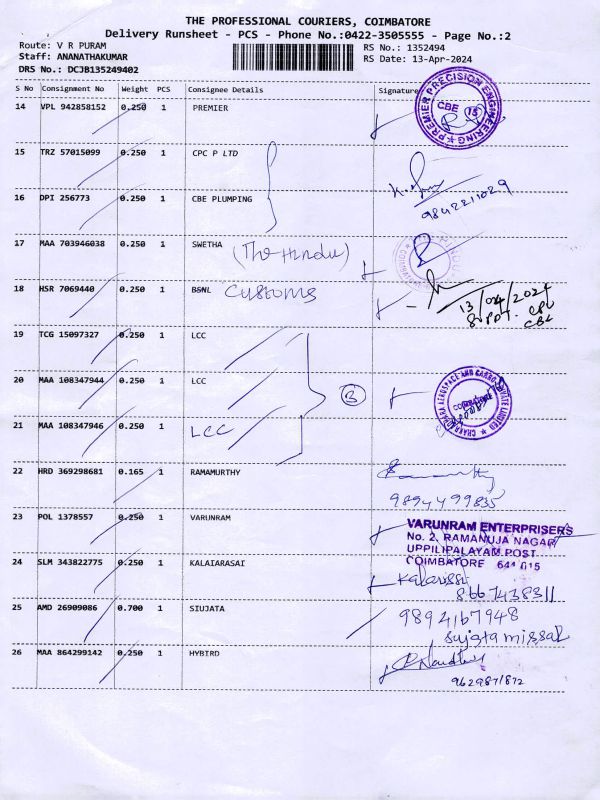 THE PROFESSIONAL COURIERS, COIMBATORE
Delivery Runsheet - PCS - Phone No.:0422-3505555 - Page No.:2
Route: V R PURAM
RS No.: 1352494
Staff: ANANATHAKUMAR
RS Date: 13-Apr-2024
DRS No.: DCJB135249402
S No Consignment No Weight PCS Consignee Details Signature
14 VPL 942858152 0.250 1 PREMIER
PREMIER PRECISION ENGINEERING
CBE 15
15 TRZ 57015099 0.250 1 CPC P LTD
16 DPI 256773 0.250 1 CBE PLUMPING
9842211029
17 MAA 703946038 0.250 1 SWETHA (The Hindu)
18 HSR 7069440 0.250 1 BSNL Customs
13/04/2024
SUPDT. CPU
CBE
19 TCG 15097327 0.250 1 LCC
20 MAA 108347944 0.250 1 LCC
3
21 MAA 108347946 0.250 1 LCC
COIMBATORE
22 HRD 369298681 0.165 1 RAMAMURTHY
Ramamurthy
9894499835
23 POL 1378557 0.250 1 VARUNRAM
VARUNRAM ENTERPRISERS
No. 2, RAMANUJA NAGAR
UPPILIPALAYAM.POST
COIMBATORE 641 015
24 SLM 343822775 0.250 1 KALAIRASAI
8667438311
25 AMD 26909086 0.700 1 SIUJATA
9894167948
26 MAA 864299142 0.250 1 HYBIRD
9629871872